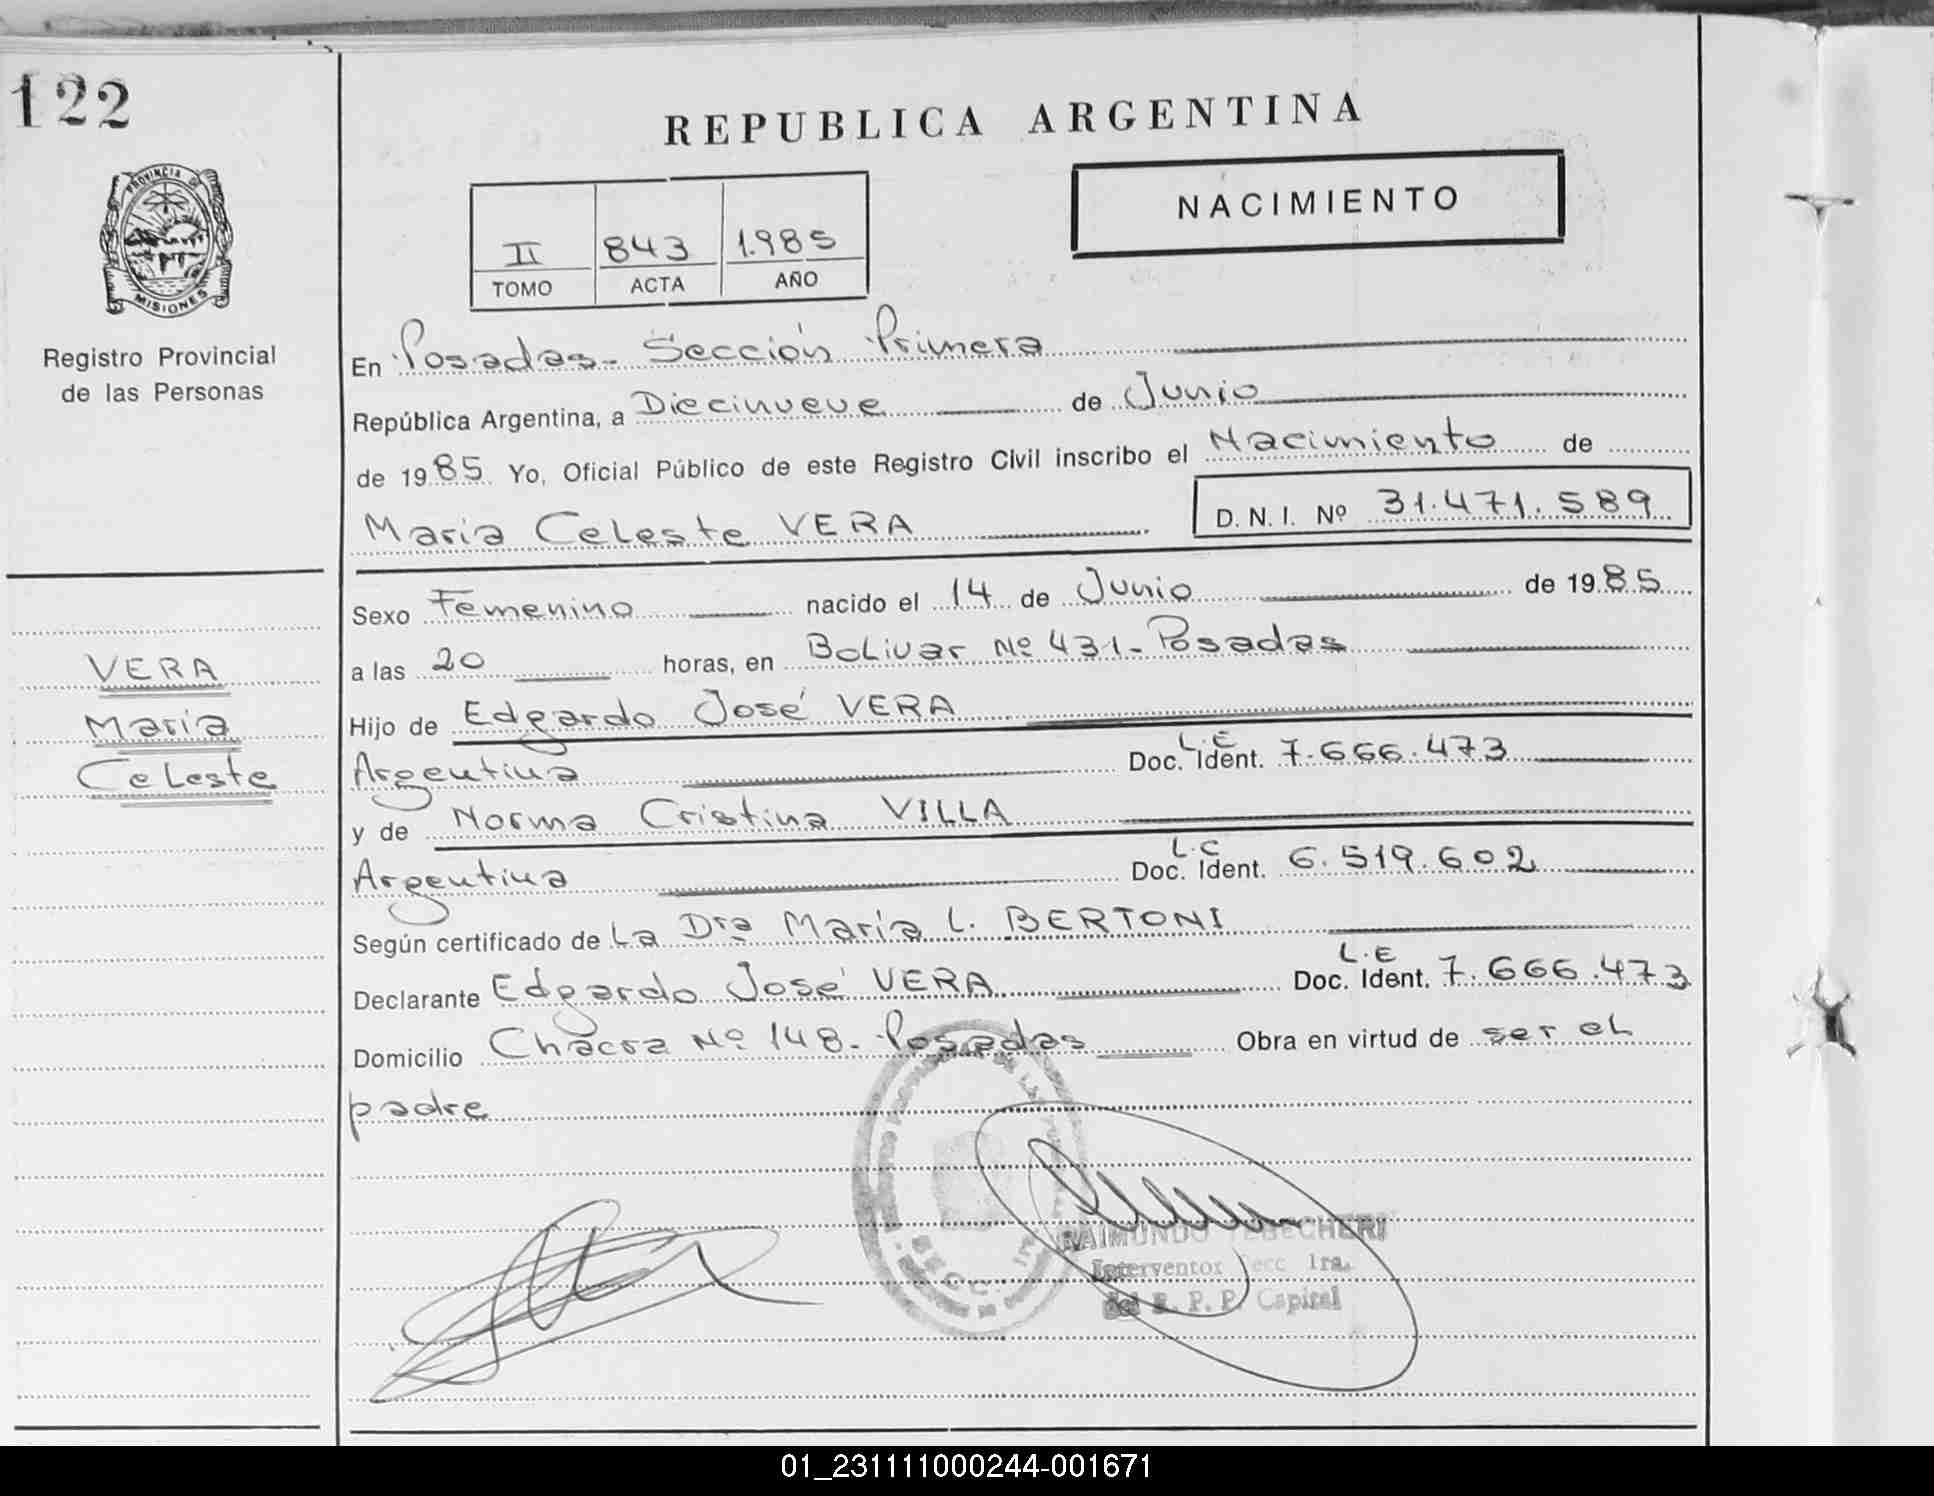 122
REPUBLICA ARGENTINA
NACIMIENTO
II 843 1.985
TOMO ACTA AÑO
PROVINCIA DE
MISIONES
Registro Provincial
de las Personas
En Posadas- Sección Primera
República Argentina, a Diecinueve de Junio
de 1985 Yo, Oficial Público de este Registro Civil inscribo el Nacimiento de
Maria Celeste VERA D. N. I. Nº 31.471.589
Sexo Femenino nacido el 14 de Junio de 1985
a las 20 horas, en Bolivar Nº 431- Posadas
Hijo de Edgardo José VERA
Argentina Doc. Ident. L.E 7.666.473
y de Norma Cristina VILLA
Argentina Doc. Ident. L.C 6.519.602
Según certificado de La Dra María L. BERTONI
Declarante Edgardo José VERA Doc. Ident. L.E 7.666.473
Domicilio Chacra Nº 148- Posadas Obra en virtud de ser el
padre
VERA
Maria
Celeste
RAIMUNDO
Interventor Secc 1ra.
del R. P. P. Capital
SECC. 1ra
01_231111000244-001671